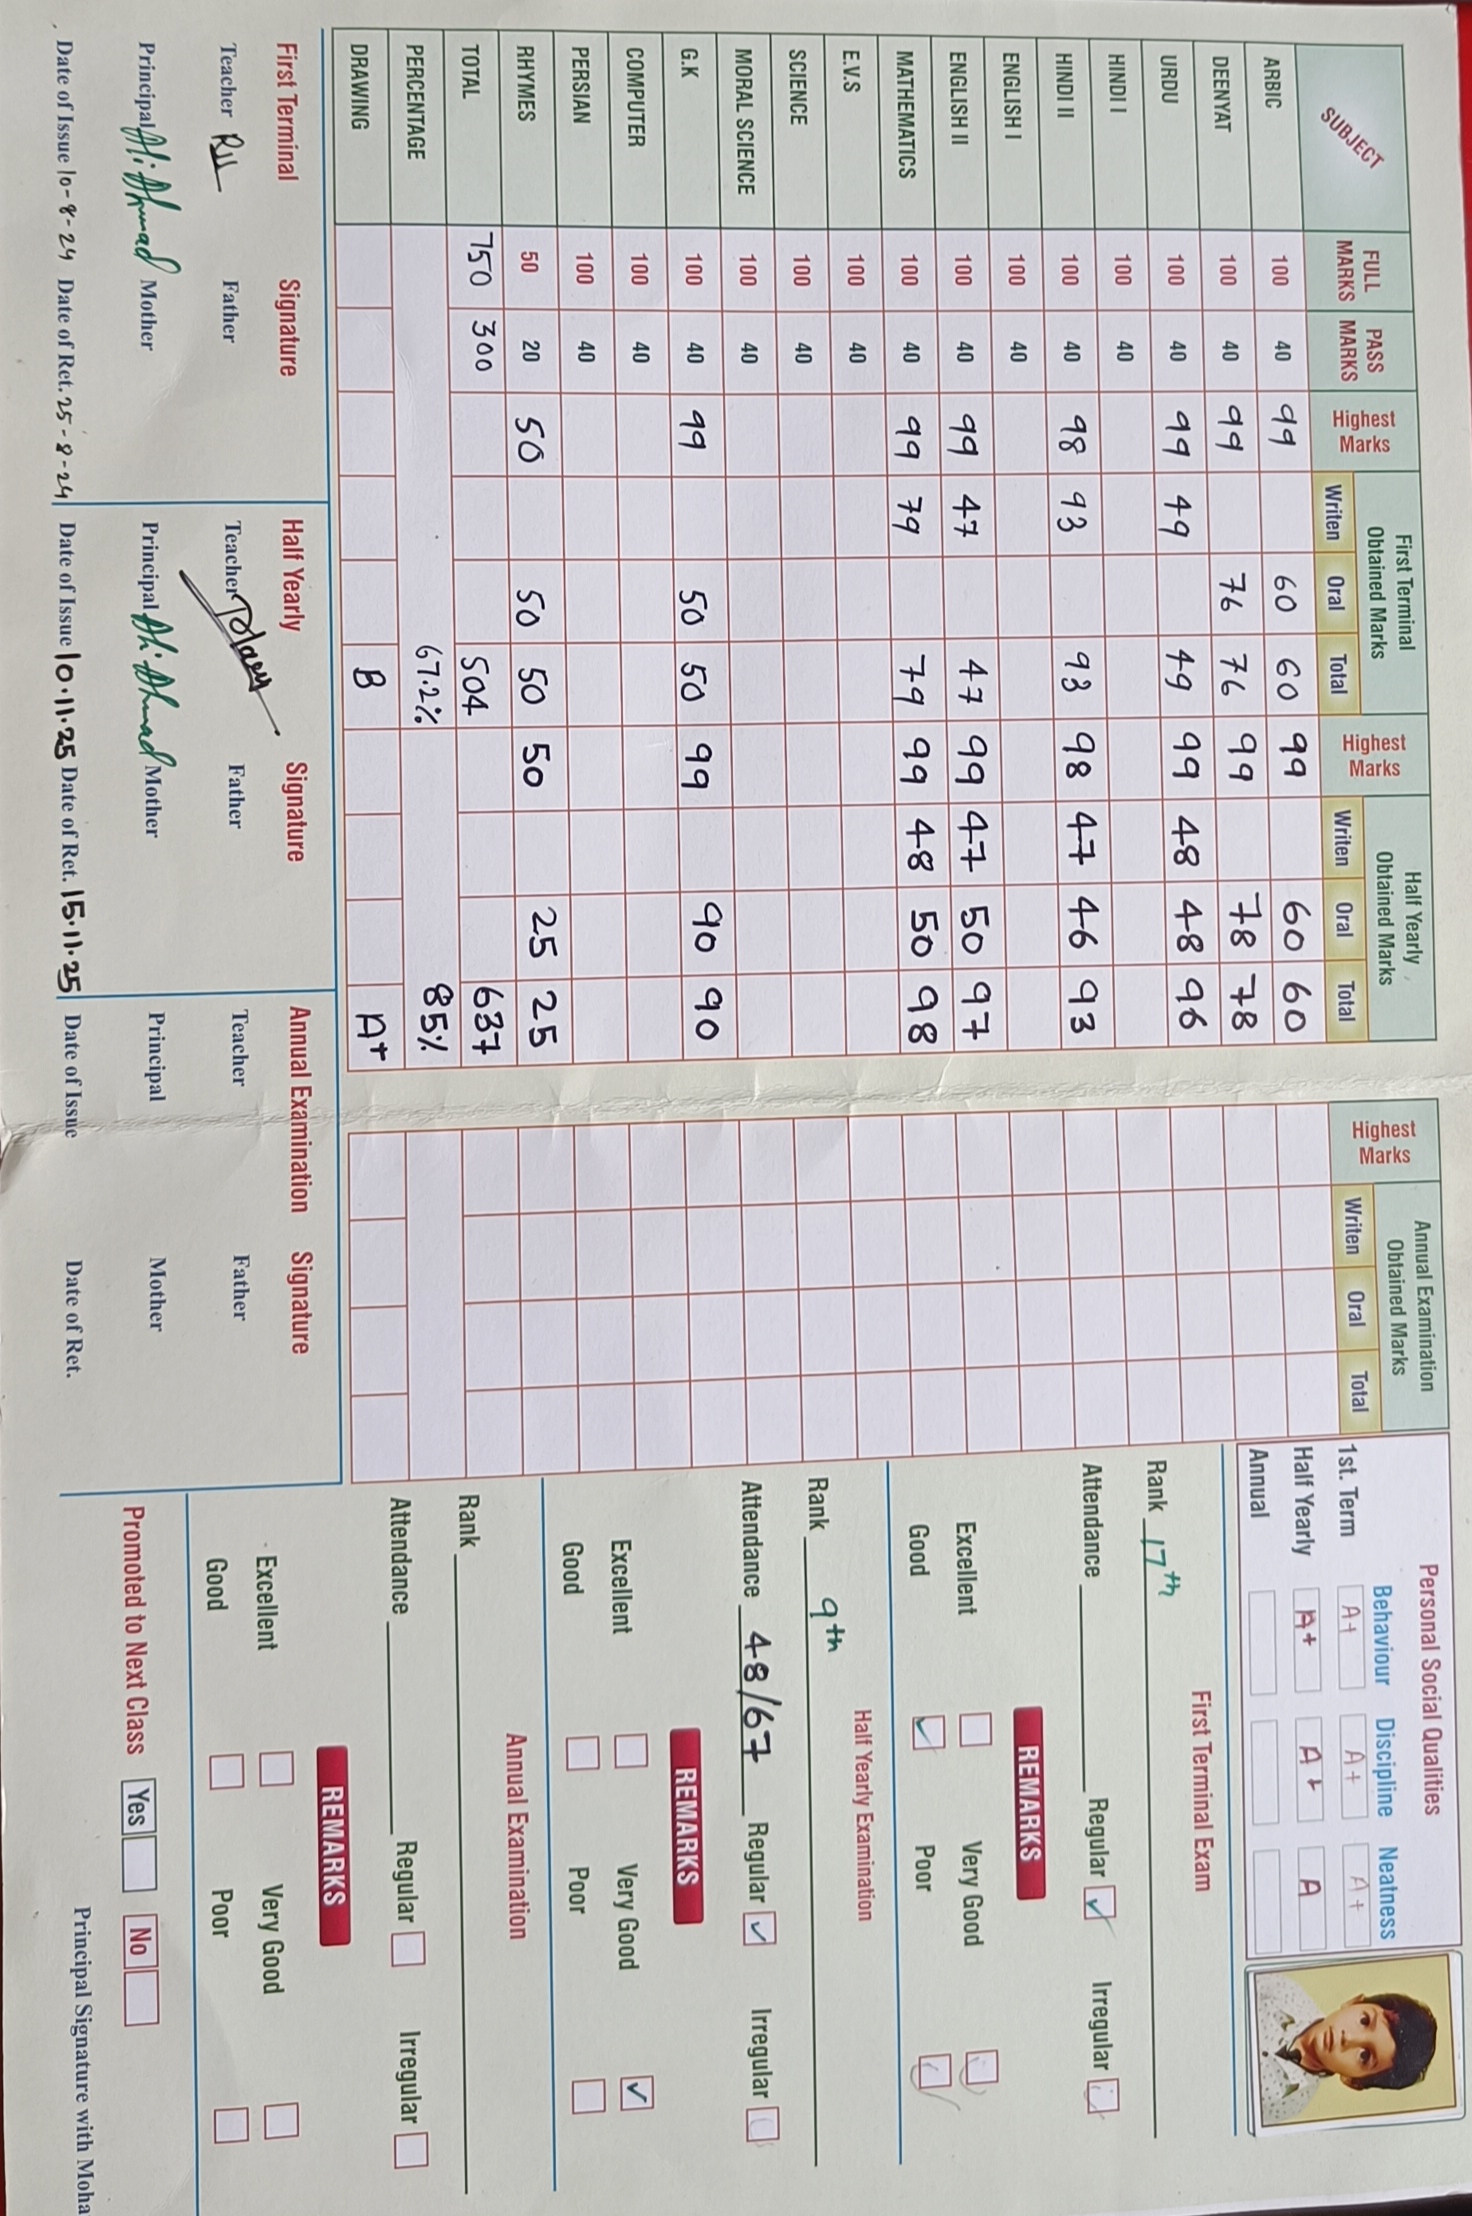 SUBJECT FULL MARKS PASS MARKS Highest Marks First Terminal Obtained Marks Writen Oral Total Highest Marks Half Yearly Obtained Marks Writen Oral Total Highest Marks Annual Examination Obtained Marks Writen Oral Total
ARBIC 100 40 99 60 60 99 60 60
DEENYAT 100 40 99 76 76 99 78 78
URDU 100 40 99 49 49 99 48 48 96
HINDI I 100 40
HINDI II 100 40 98 93 93 98 47 46 93
ENGLISH I 100 40
ENGLISH II 100 40 99 47 47 99 47 50 97
MATHEMATICS 100 40 99 79 79 99 48 50 98
E.V.S 100 40
SCIENCE 100 40
MORAL SCIENCE 100 40
G.K 100 40 99 50 50 99 90 90
COMPUTER 100 40
PERSIAN 100 40
RHYMES 50 20 50 50 50 50 25 25
TOTAL 750 300 504 637
PERCENTAGE 67.2% 85%
DRAWING B A+
First Terminal Signature
Teacher Father
Principal Ali Ahmad Mother
Date of Issue 10-8-24 Date of Ret. 25-8-24
Half Yearly Signature
Teacher Father
Principal Ali Ahmad Mother
Date of Issue 10.11.25 Date of Ret. 15.11.25
Annual Examination Signature
Teacher Father
Principal Mother
Date of Issue Date of Ret.
Personal Social Qualities
Behaviour Discipline Neatness
1st. Term A+ A+ A+
Half Yearly A+ A+ A
Annual
First Terminal Exam
Rank 17th
Attendance Regular ✓ Irregular
REMARKS
Excellent Very Good
Good ✓ Poor
Half Yearly Examination
Rank 9th
Attendance 48/67 Regular ✓ Irregular
REMARKS
Excellent Very Good ✓
Good Poor
Annual Examination
Rank
Attendance Regular Irregular
REMARKS
Excellent Very Good
Good Poor
Promoted to Next Class Yes No
Principal Signature with Moha